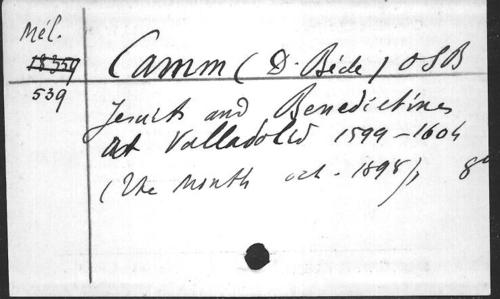 Mél.
18359
539
Camm (D. Bède) OSB
Jesuits and Benedictines
at Valladolid 1599-1604
(The Month oct. 1898), 8°